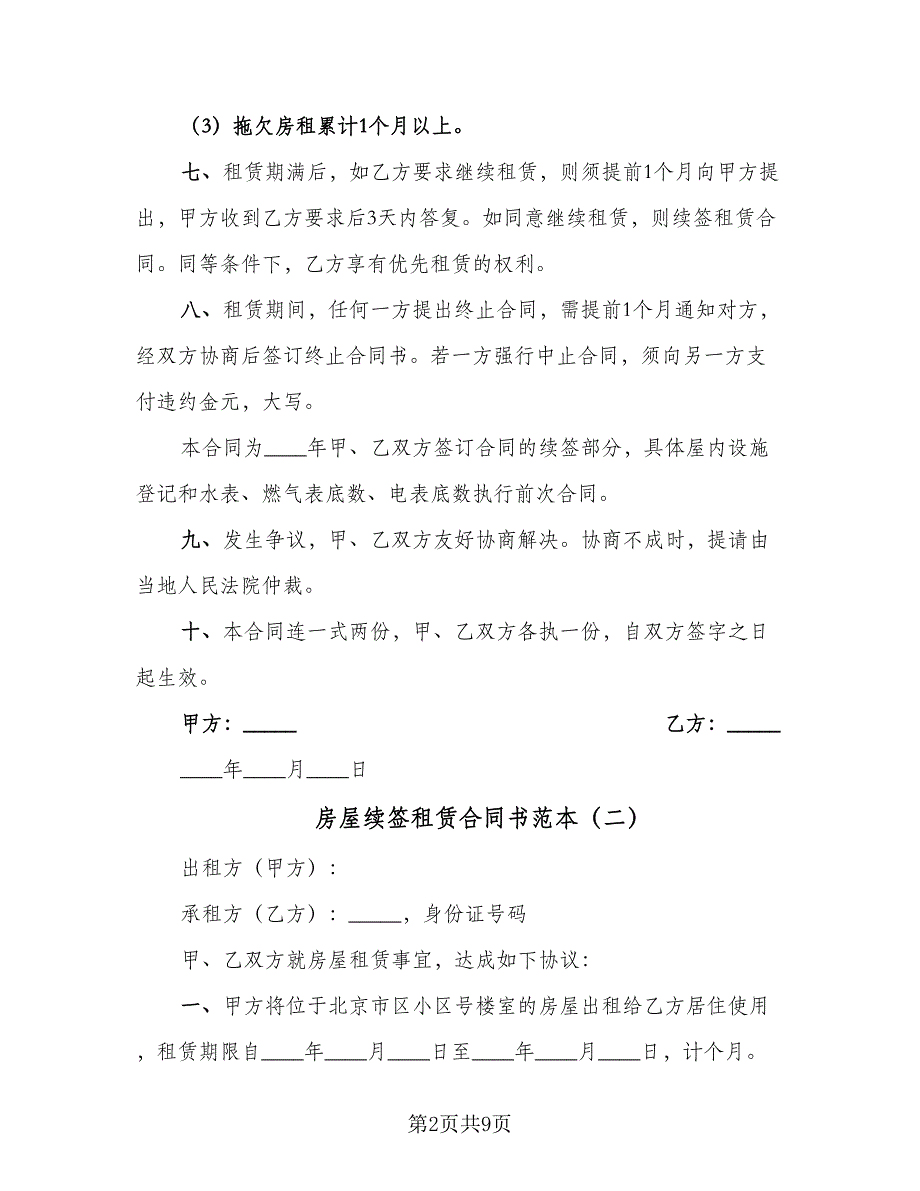 （3）拖欠房租累计1个月以上。
七、租赁期满后，如乙方要求继续租赁，则须提前1个月向甲方提
出，甲方收到乙方要求后3天内答复。如同意继续租赁，则续签租赁合
同。同等条件下，乙方享有优先租赁的权利。
八、租赁期间，任何一方提出终止合同，需提前1个月通知对方，
经双方协商后签订终止合同书。若一方强行中止合同，须向另一方支
付违约金元，大写。
本合同为____年甲、乙双方签订合同的续签部分，具体屋内设施
登记和水表、燃气表底数、电表底数执行前次合同。
九、发生争议，甲、乙双方友好协商解决。协商不成时，提请由
当地人民法院仲裁。
十、本合同连一式两份，甲、乙双方各执一份，自双方签字之日
起生效。
甲方：_____ 乙方：_____
____年____月____日
房屋续签租赁合同书范本（二）
出租方（甲方）：
承租方（乙方）：_____，身份证号码
甲、乙双方就房屋租赁事宜，达成如下协议：
一、甲方将位于北京市区小区号楼室的房屋出租给乙方居住使用
，租赁期限自____年____月____日至____年____月____日，计个月。
第2页共9页